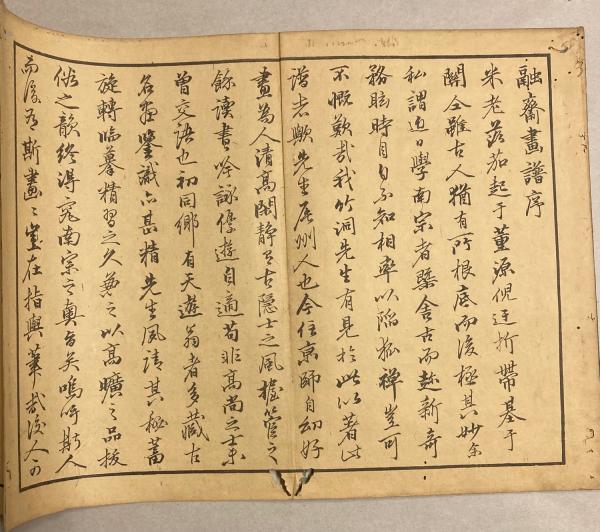 融齋畫譜序
米老落茄起于董源倪迂折帶基于
關仝雖古人猶有所根底而後極其妙爾
私謂近日學南宗者槩舍古而趍新奇
務眩時目自不知相率以陷狐禪豈可
不慨歎哉我竹洞先生有見於此以著此
譜者歟先生尾州人也今住京師自幼好
畫為人清高閑静有古隱士之風搖管之
餘讀書吟詠優遊自適苟非高尚之士未
曽交語也初同郷有天遊翁者多藏古
名畫鑒識亦甚精先生夙請其秘蓄
旋轉臨摹精習之久兼之以高曠之品拔
俗之韻終得窺南宗之奧旨矣嗚呼斯人
而後有斯畫畫豈在指與筆哉後人可